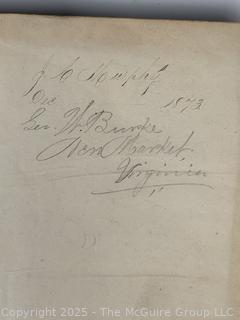 J C Murphy
Dec 1873
Geo. W. Burke
New Market,
Virginia
Copyright 2025 - The McGuire Group LLC